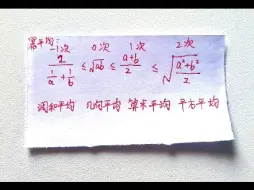 幂平均: -1次 0次 1次 2次
2/(1/a+1/b) ≤ √ab ≤ (a+b)/2 ≤ √((a²+b²)/2)
调和平均 几何平均 算术平均 平方平均